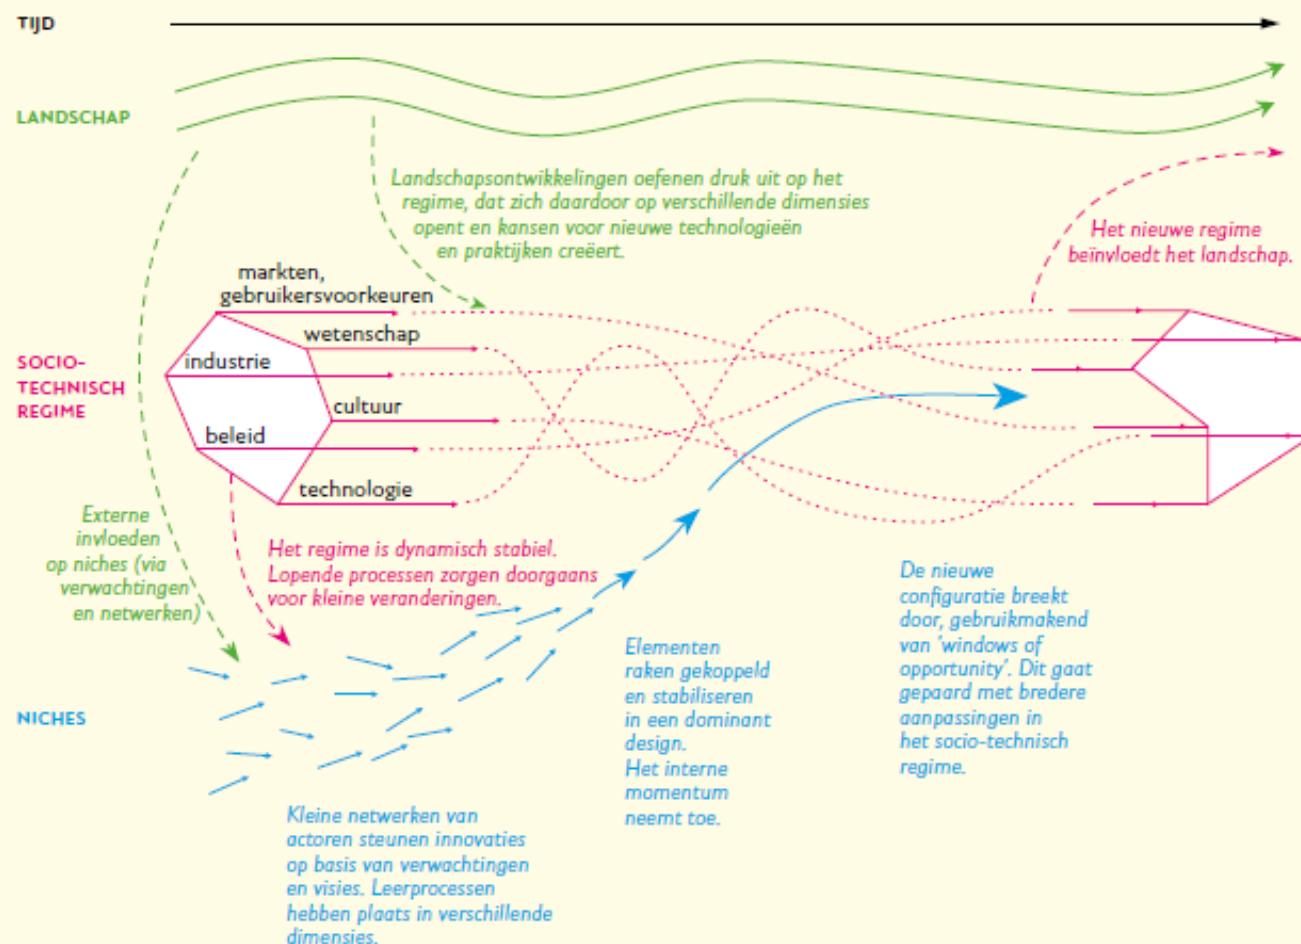 TIJD
LANDSCHAP
Landschapsontwikkelingen oefenen druk uit op het
regime, dat zich daardoor op verschillende dimensies
opent en kansen voor nieuwe technologieën
en praktijken creëert.
Het nieuwe regime
beïnvloedt het landschap.
markten,
gebruikersvoorkeuren
wetenschap
SOCIO-
TECHNISCH
REGIME
industrie
cultuur
beleid
technologie
Externe
invloeden
op niches (via
verwachtingen
en netwerken)
Het regime is dynamisch stabiel.
Lopende processen zorgen doorgaans
voor kleine veranderingen.
NICHES
Kleine netwerken van
actoren steunen innovaties
op basis van verwachtingen
en visies. Leerprocessen
hebben plaats in verschillende
dimensies.
Elementen
raken gekoppeld
en stabiliseren
in een dominant
design.
Het interne
momentum
neemt toe.
De nieuwe
configuratie breekt
door, gebruikmakend
van ‘windows of
opportunity’. Dit gaat
gepaard met bredere
aanpassingen in
het socio-technisch
regime.